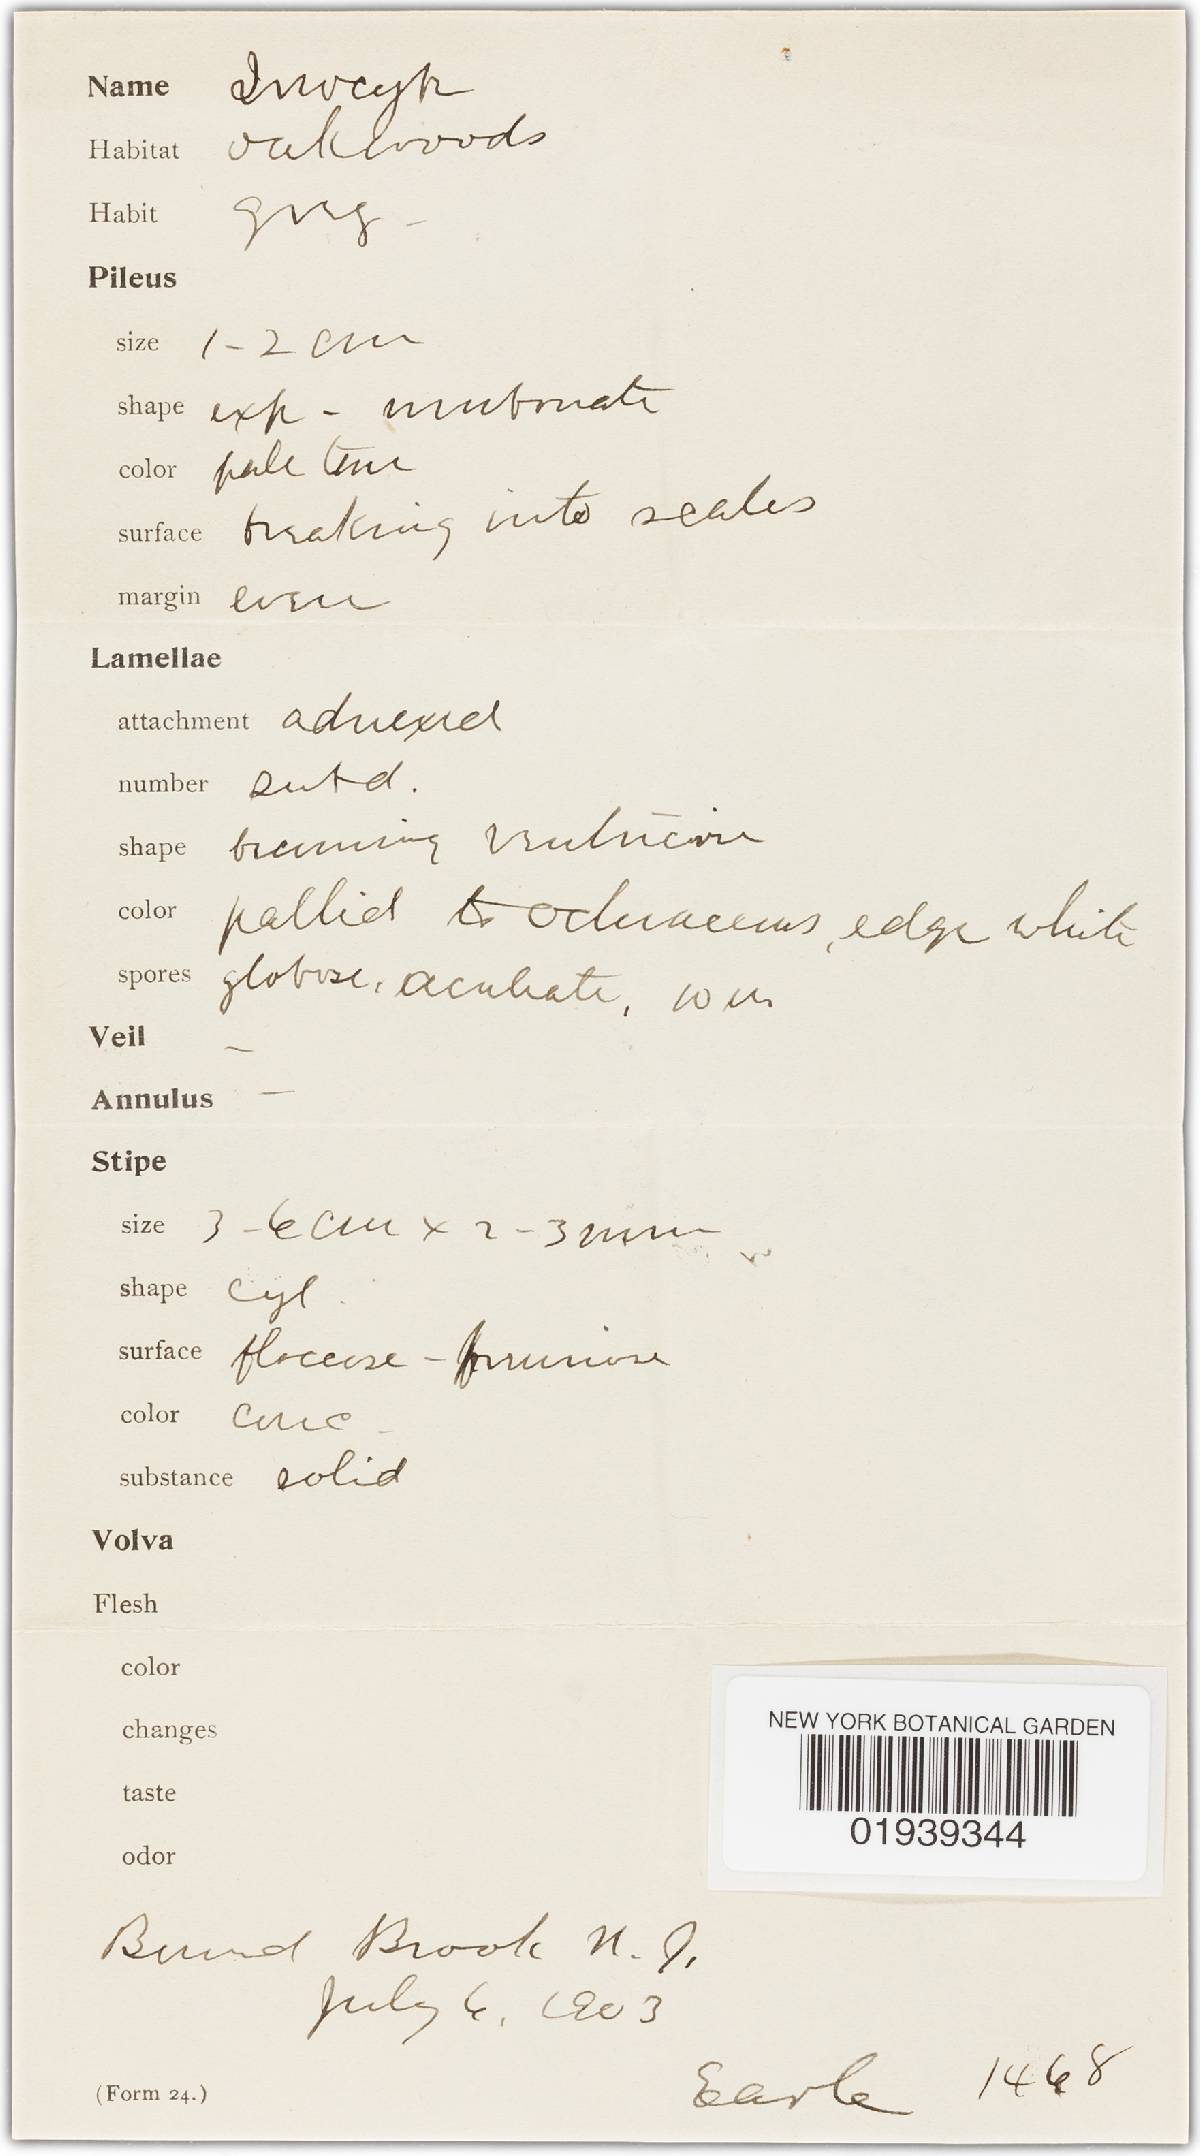 Name Inocybe
Habitat oakwoods
Habit greg-
Pileus
size 1-2 cm
shape exp - umbonate
color pale tan
surface breaking into scales
margin even
Lamellae
attachment adnexed
number subd.
shape becoming ventricose
color pallid to ochraceous, edge white
spores globose, aculeate, 10 m
Veil —
Annulus —
Stipe
size 3-6 cm x 2-3 mm
shape cyl.
surface floccose - pruinose
color conc-
substance solid
Volva
Flesh
color
changes
taste
odor
NEW YORK BOTANICAL GARDEN
01939344
Bound Brook N. J.
July 6, 1903
(Form 24.) Earle 1468